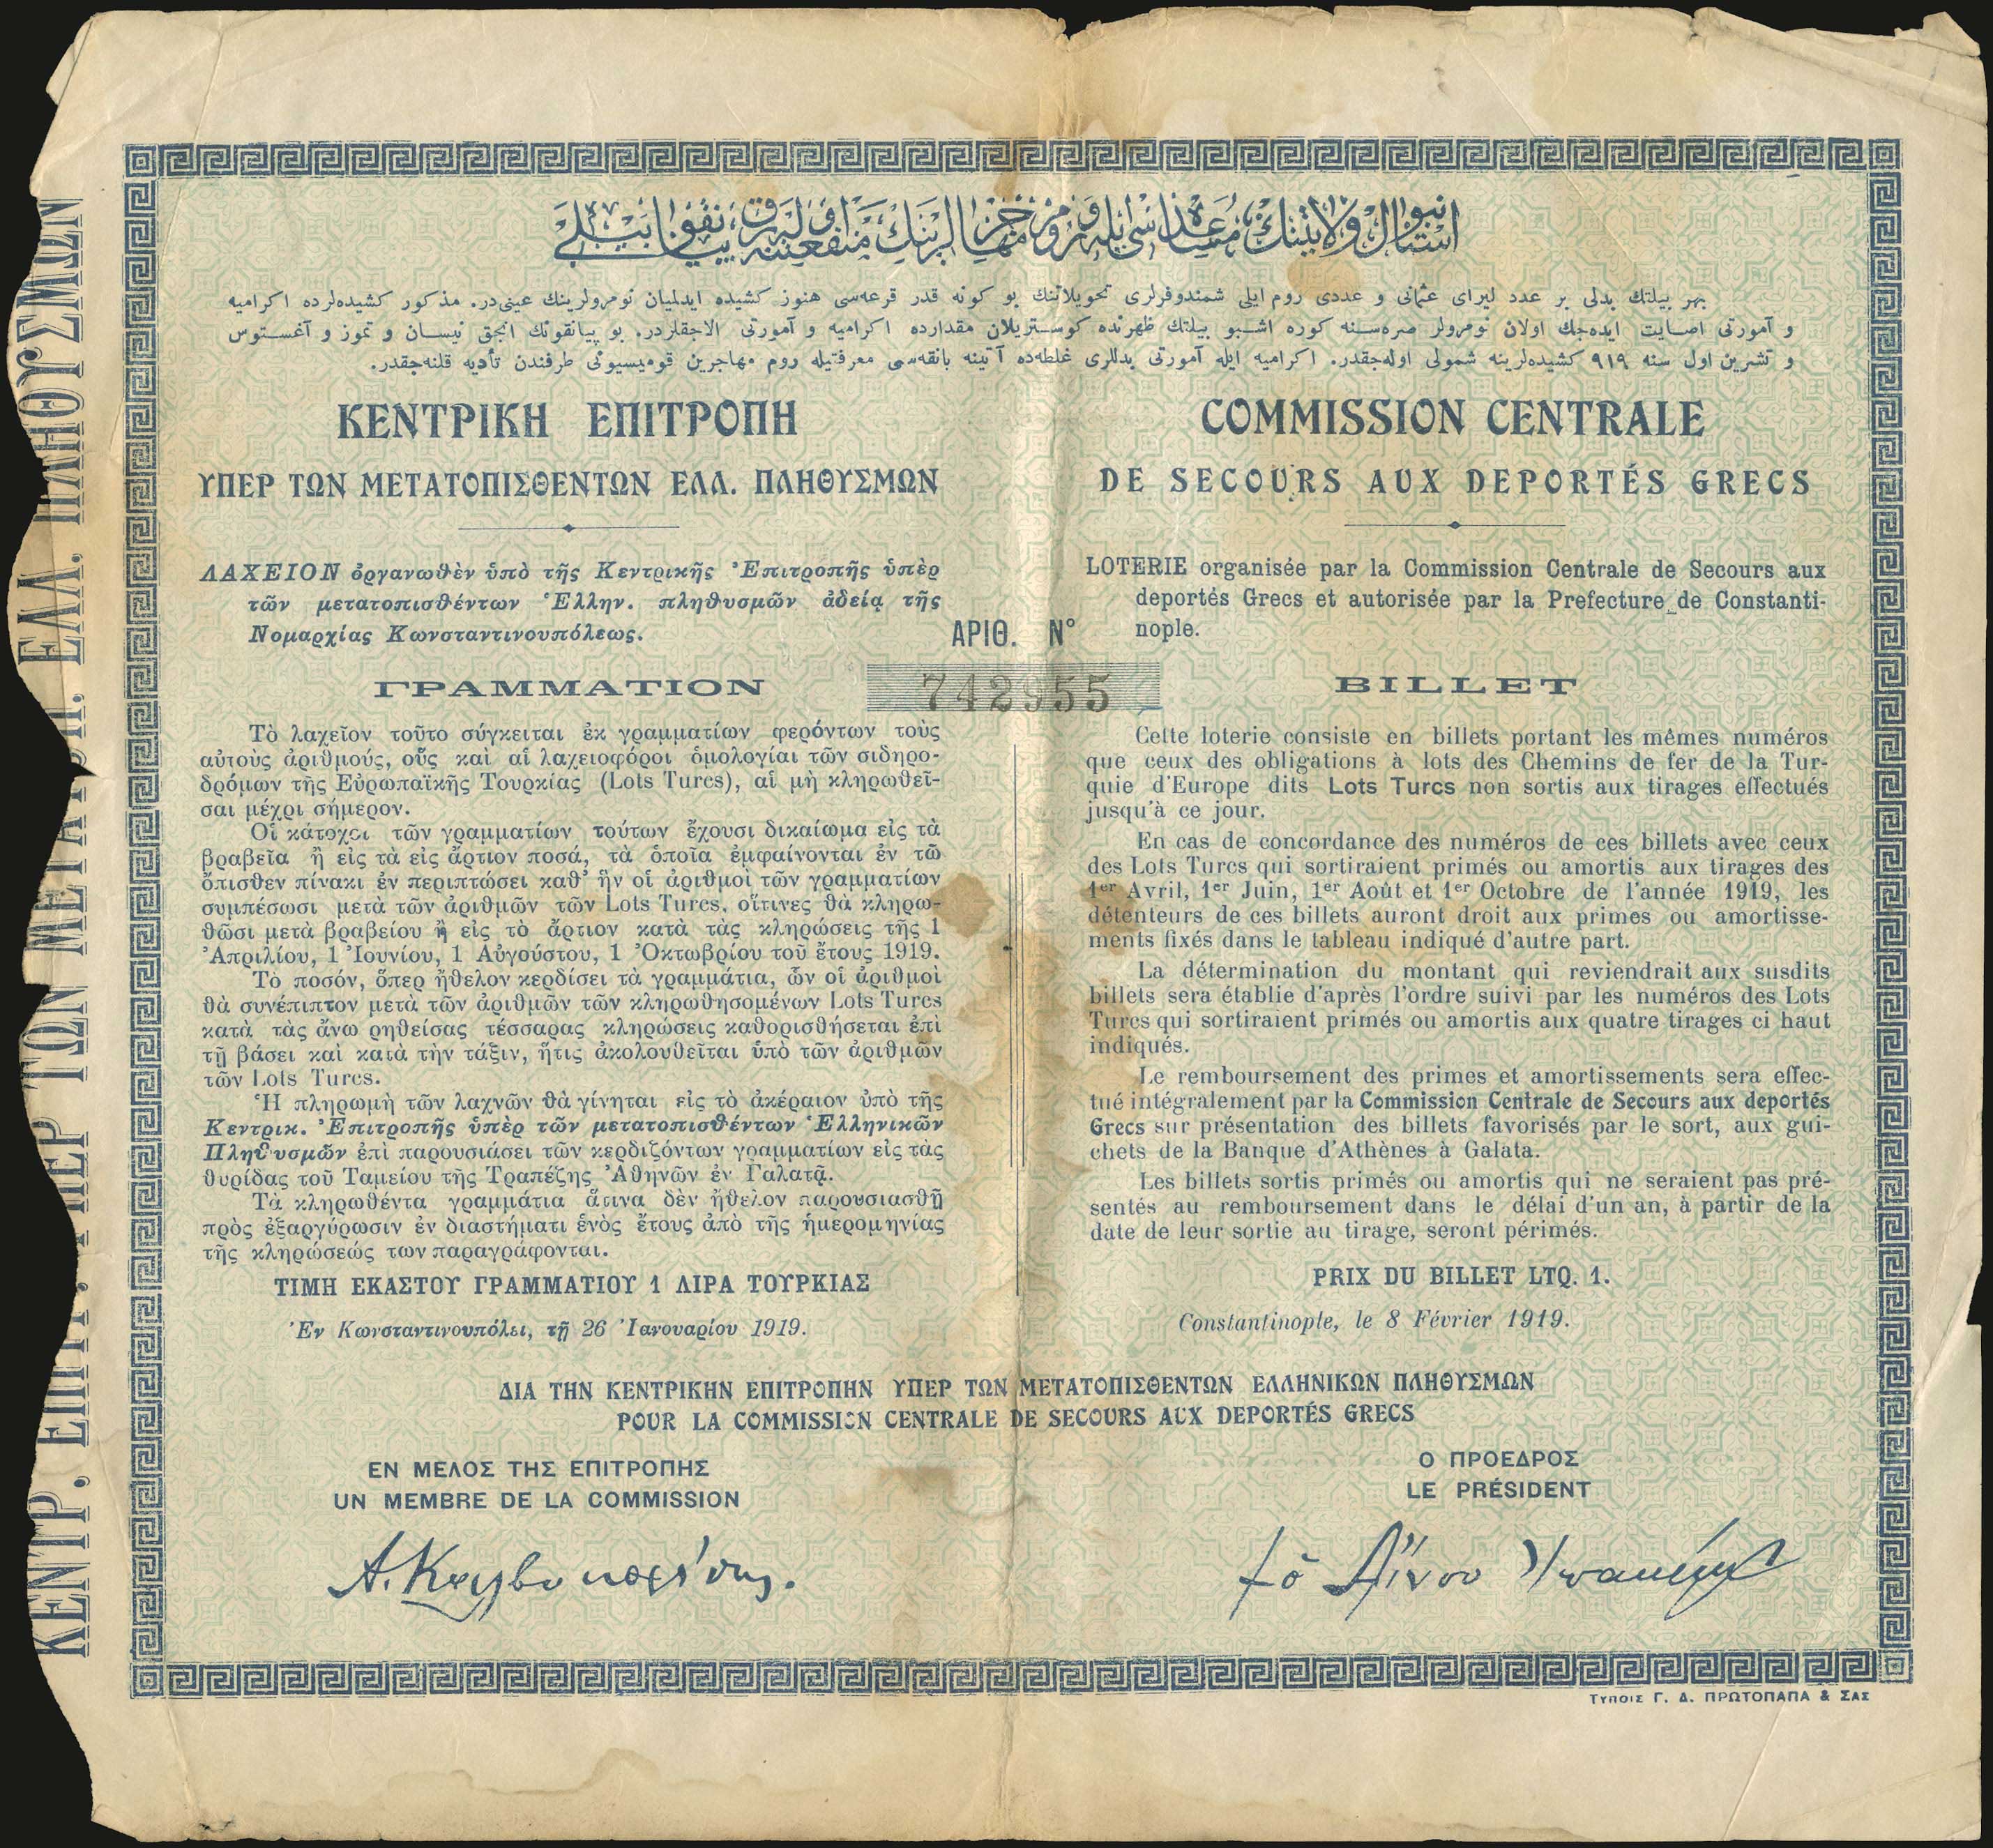 بهر بيلتك بدلى بر عدد ليراى عثمانى و عددى روم ايلى شمندوفرلرى تحويلاتنك بو كونه قدر قرعه‌سى هنوز كشيده ايدلميان نومرولرينك عينى‌در. مذكور كشيده‌لرده اكراميه
و آمورتى اصابت ايده‌جك اولان نومرولر صره‌سنه كوره اشبو بيلتك ظهرنده كوستريلان مقدارده اكراميه و آمورتى آلاجقلردر. بو پيانقونك انجق نيسان و تموز و آغستوس
و تشرين اول سنه ٩١٩ كشيده‌لرينه شمولى اوله‌جقدر. اكراميه ايله آمورتى بدللرى غلطه‌ده آتينه بانقه‌سى معرفتيله روم مهاجرين قوميسيونى طرفندن تأديه قلنه‌جقدر.
ΚΕΝΤΡΙΚΗ ΕΠΙΤΡΟΠΗ
ΥΠΕΡ ΤΩΝ ΜΕΤΑΤΟΠΙΣΘΕΝΤΩΝ ΕΛΛ. ΠΛΗΘΥΣΜΩΝ
ΛΑΧΕΙΟΝ ὀργανωθὲν ὑπὸ τῆς Κεντρικῆς Ἐπιτροπῆς ὑπὲρ
τῶν μετατοπισθέντων Ἑλλην. πληθυσμῶν ἀδείᾳ τῆς
Νομαρχίας Κωνσταντινουπόλεως.
ΓΡΑΜΜΑΤΙΟΝ
Τὸ λαχεῖον τοῦτο σύγκειται ἐκ γραμματίων φερόντων τοὺς
αὐτοὺς ἀριθμούς, οὓς καὶ αἱ λαχειοφόροι ὁμολογίαι τῶν σιδηρο-
δρόμων τῆς Εὐρωπαϊκῆς Τουρκίας (Lots Turcs), αἱ μὴ κληρωθεῖ-
σαι μέχρι σήμερον.
Οἱ κάτοχοι τῶν γραμματίων τούτων ἔχουσι δικαίωμα εἰς τὰ
βραβεῖα ἢ εἰς τὰ εἰς ἄρτιον ποσά, τὰ ὁποῖα ἐμφαίνονται ἐν τῷ
ὄπισθεν πίνακι ἐν περιπτώσει καθ' ἣν οἱ ἀριθμοὶ τῶν γραμματίων
συμπέσωσι μετὰ τῶν ἀριθμῶν τῶν Lots Turcs, οἵτινες θὰ κληρω-
θῶσι μετὰ βραβείου ἢ εἰς τὸ ἄρτιον κατὰ τὰς κληρώσεις τῆς 1
Ἀπριλίου, 1 Ἰουνίου, 1 Αὐγούστου, 1 Ὀκτωβρίου τοῦ ἔτους 1919.
Τὸ ποσόν, ὅπερ ἤθελον κερδίσει τὰ γραμμάτια, ὧν οἱ ἀριθμοὶ
θὰ συνέπιπτον μετὰ τῶν ἀριθμῶν τῶν κληρωθησομένων Lots Turcs
κατὰ τὰς ἄνω ρηθείσας τέσσαρας κληρώσεις καθορισθήσεται ἐπὶ
τῇ βάσει καὶ κατὰ τὴν τάξιν, ἥτις ἀκολουθεῖται ὑπὸ τῶν ἀριθμῶν
τῶν Lots Turcs.
Ἡ πληρωμὴ τῶν λαχνῶν θὰ γίνηται εἰς τὸ ἀκέραιον ὑπὸ τῆς
Κεντρικ. Ἐπιτροπῆς ὑπὲρ τῶν μετατοπισθέντων Ἑλληνικῶν
Πληθυσμῶν ἐπὶ παρουσιάσει τῶν κερδιζόντων γραμματίων εἰς τὰς
θυρίδας τοῦ Ταμείου τῆς Τραπέζης Ἀθηνῶν ἐν Γαλατᾷ.
Τὰ κληρωθέντα γραμμάτια ἅτινα δὲν ἤθελον παρουσιασθῇ
πρὸς ἐξαργύρωσιν ἐν διαστήματι ἑνὸς ἔτους ἀπὸ τῆς ἡμερομηνίας
τῆς κληρώσεώς των παραγράφονται.
ΤΙΜΗ ΕΚΑΣΤΟΥ ΓΡΑΜΜΑΤΙΟΥ 1 ΛΙΡΑ ΤΟΥΡΚΙΑΣ
Ἐν Κωνσταντινουπόλει, τῇ 26 Ἰανουαρίου 1919.
ΑΡΙΘ. N°
742955
COMMISSION CENTRALE
DE SECOURS AUX DEPORTÉS GRECS
LOTERIE organisée par la Commission Centrale de Secours aux
deportés Grecs et autorisée par la Prefecture de Constanti-
nople.
BILLET
Cette loterie consiste en billets portant les mêmes numéros
que ceux des obligations à lots des Chemins de fer de la Tur-
quie d'Europe dits Lots Turcs non sortis aux tirages effectués
jusqu'à ce jour.
En cas de concordance des numéros de ces billets avec ceux
des Lots Turcs qui sortiraient primés ou amortis aux tirages des
1er Avril, 1er Juin, 1er Août et 1er Octobre de l'année 1919, les
détenteurs de ces billets auront droit aux primes ou amortisse-
ments fixés dans le tableau indiqué d'autre part.
La détermination du montant qui reviendrait aux susdits
billets sera établie d'après l'ordre suivi par les numéros des Lots
Turcs qui sortiraient primés ou amortis aux quatre tirages ci haut
indiqués.
Le remboursement des primes et amortissements sera effec-
tué intégralement par la Commission Centrale de Secours aux deportés
Grecs sur présentation des billets favorisés par le sort, aux gui-
chets de la Banque d'Athènes à Galata.
Les billets sortis primés ou amortis qui ne seraient pas pré-
sentés au remboursement dans le délai d'un an, à partir de la
date de leur sortie au tirage, seront périmés.
PRIX DU BILLET LTQ. 1.
Constantinople, le 8 Février 1919.
ΔΙΑ ΤΗΝ ΚΕΝΤΡΙΚΗΝ ΕΠΙΤΡΟΠΗΝ ΥΠΕΡ ΤΩΝ ΜΕΤΑΤΟΠΙΣΘΕΝΤΩΝ ΕΛΛΗΝΙΚΩΝ ΠΛΗΘΥΣΜΩΝ
POUR LA COMMISSION CENTRALE DE SECOURS AUX DEPORTÉS GRECS
ΕΝ ΜΕΛΟΣ ΤΗΣ ΕΠΙΤΡΟΠΗΣ
UN MEMBRE DE LA COMMISSION
Ο ΠΡΟΕΔΡΟΣ
LE PRÉSIDENT
ΤΥΠΟΙΣ Γ. Δ. ΠΡΩΤΟΠΑΠΑ & ΣΑΣ
ΚΕΝΤΡ. ΕΠΙΤΡ. ΥΠΕΡ ΤΩΝ ΜΕΤΑΤΟΠ. ΕΛΛ. ΠΛΗΘΥΣΜΩΝ